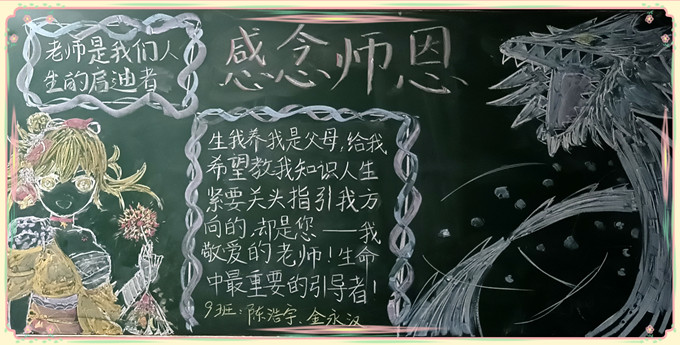 老师是我们人
生的启迪者
感念师恩
生我养我是父母,给我
希望教我知识人生
紧要关头指引我方
向的,却是您——我
敬爱的老师!生命
中最重要的引导者!
9班:陈浩宇、金永汉